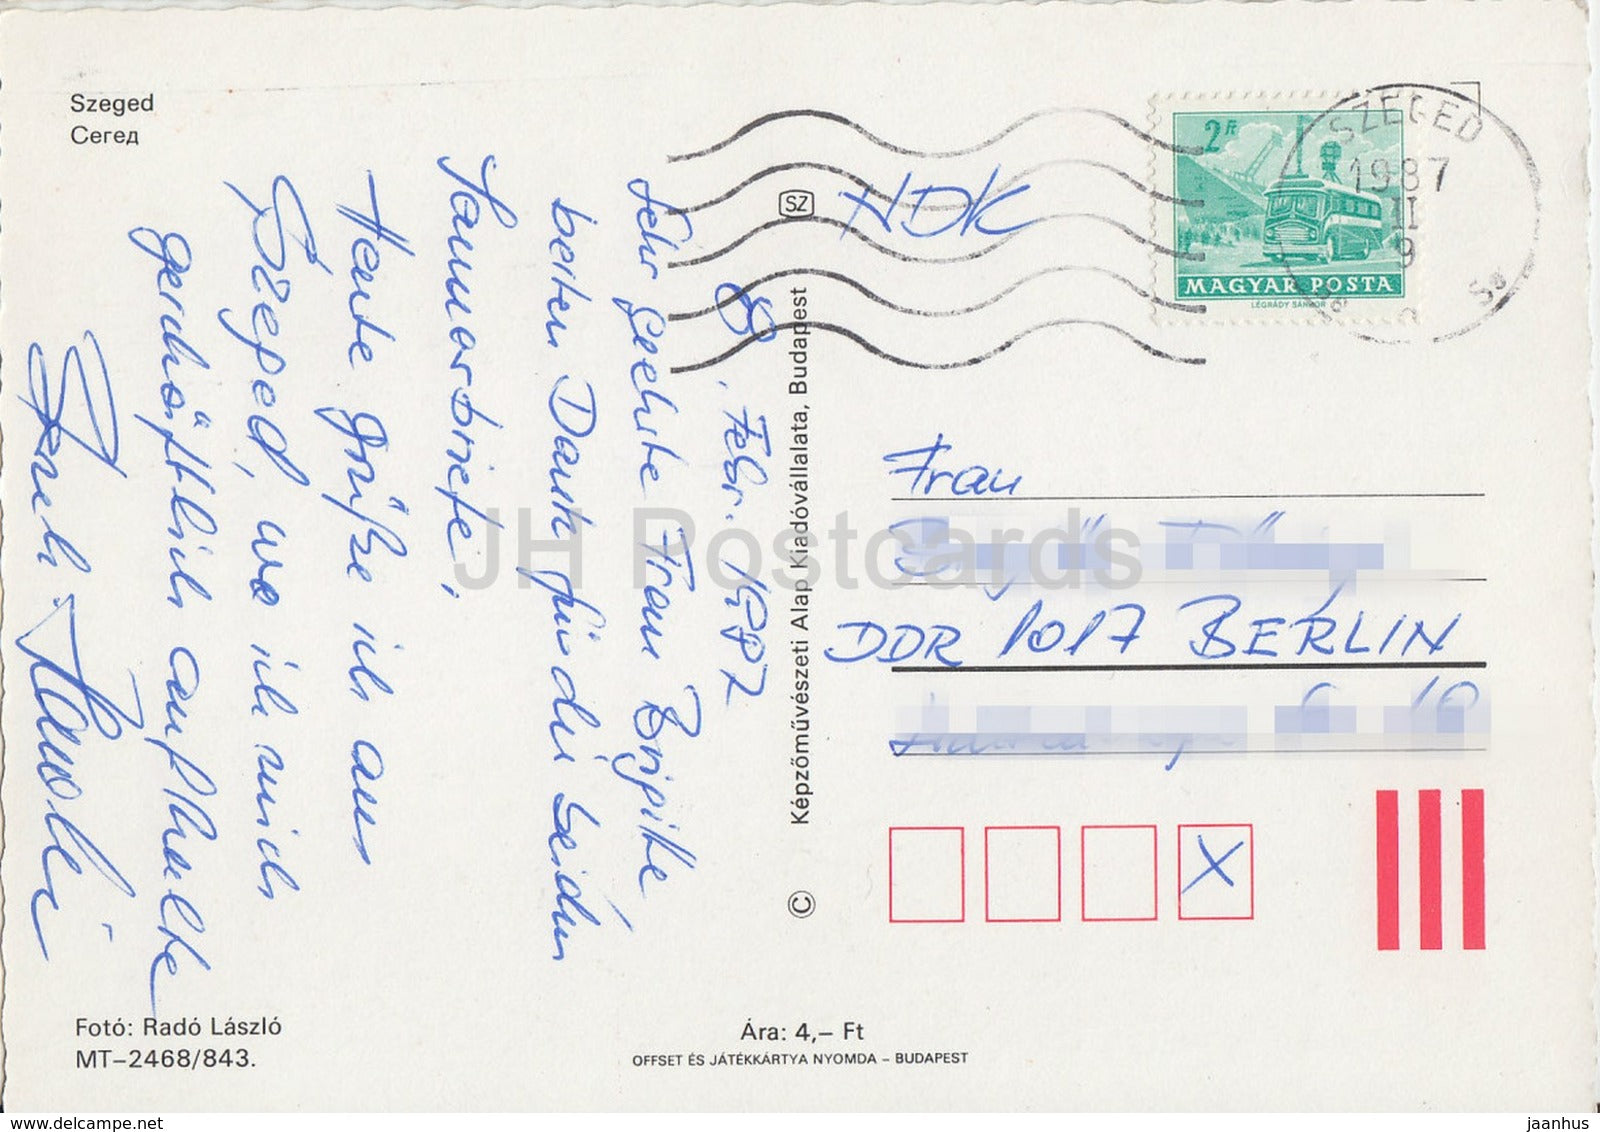 Szeged
Сегед
8. Febr. 1987
Sehr Geehrte Frau Brigitte
besten Dank für die beiden
Januarbriefe,
Heute grüße ich aus
Szeged, wo ich mich
geschäftlich aufhalte
SZ
Képzőművészeti Alap Kiadóvállalata, Budapest
©
NDK
2 Ft
MAGYAR POSTA
LÉGRÁDY SÁNDOR
SZEGED
1987
II
9
Frau
DDR 1017 BERLIN
X
JH Postcards
Fotó: Radó László
MT–2468/843.
Ára: 4,– Ft
OFFSET ÉS JÁTÉKKÁRTYA NYOMDA – BUDAPEST
www.delcampe.net
jaanhus